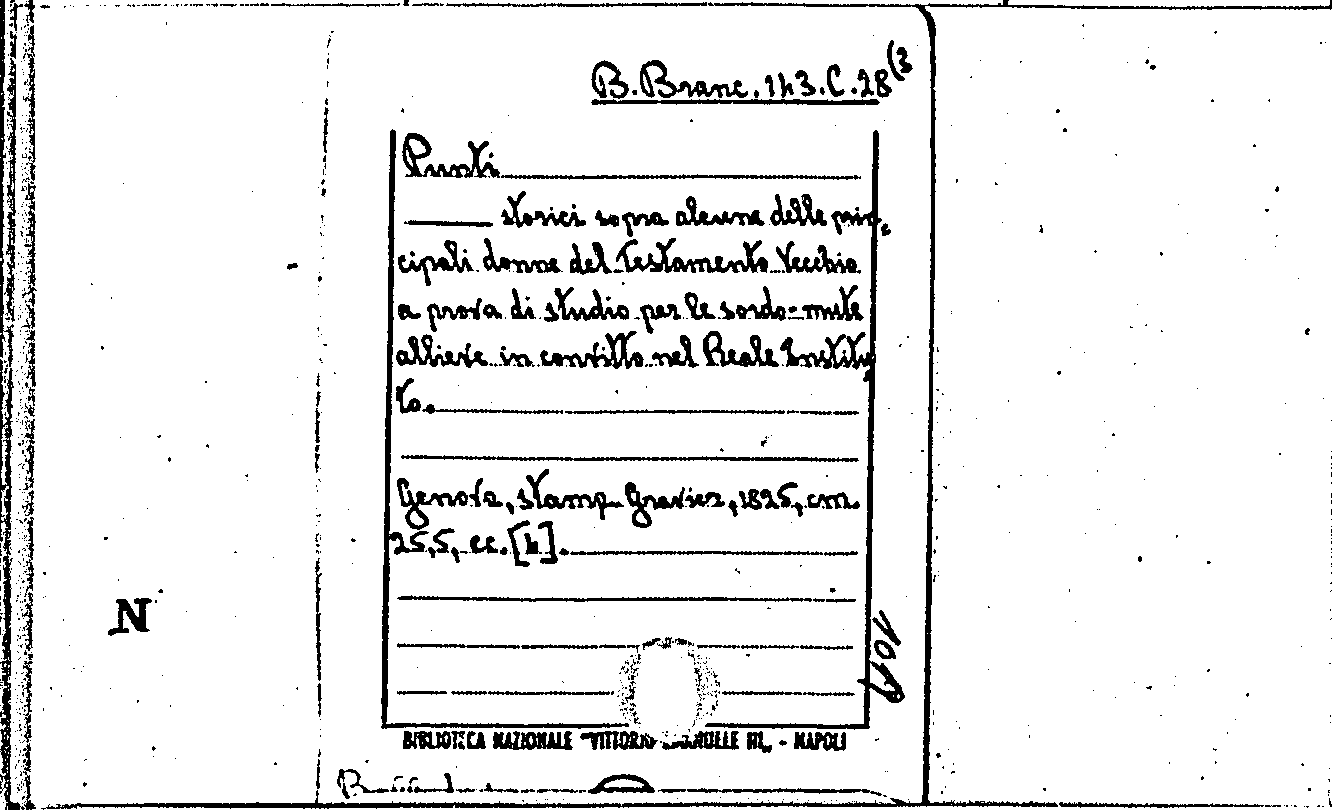 B. Branc. 143. C. 28 (3
Punti
storici sopra alcune delle prin-
cipali donne del Testamento Vecchio
a prova di studio per le sordo-mute
allieve in convitto nel Reale Institu-
to.
Genova, stamp. Gravier, 1825, cm.
25,5, cc. [4].
N
BIBLIOTECA NAZIONALE "VITTORIO EMANUELE III" - NAPOLI